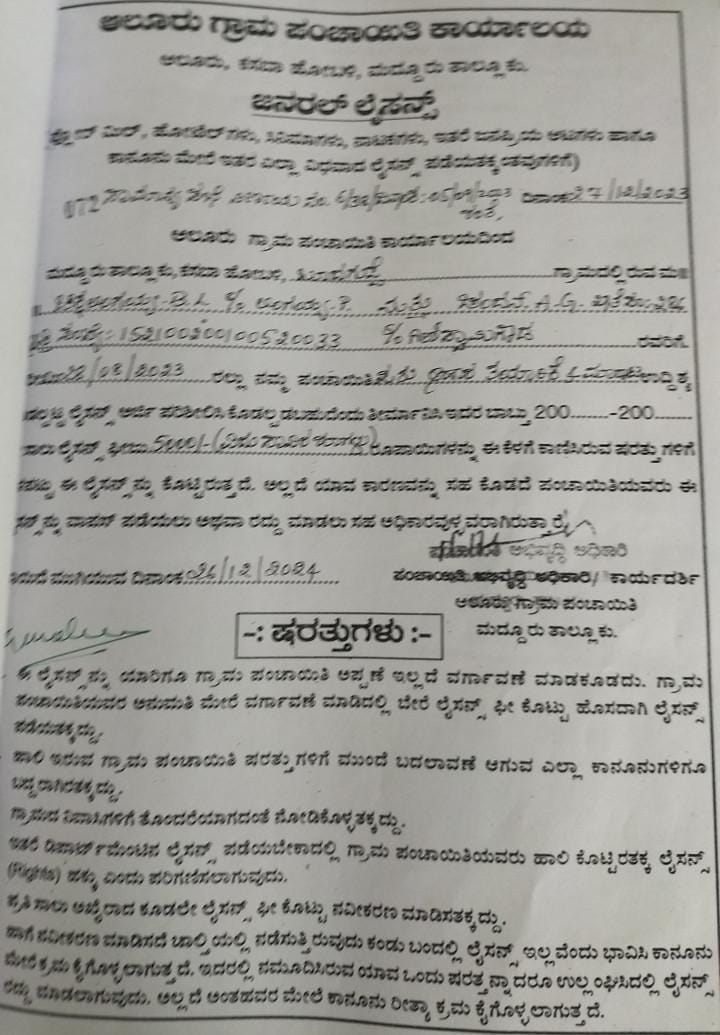 ಆಲೂರು ಗ್ರಾಮ ಪಂಚಾಯಿತಿ ಕಾರ್ಯಾಲಯ
ಆಲೂರು, ಕಸಬಾ ಹೋಬಳಿ, ಮದ್ದೂರು ತಾಲ್ಲೂಕು.
ಜನರಲ್ ಲೈಸನ್ಸ್
ಮಿಲ್, ಹೋಟೆಲ್‌ಗಳು, ಸಿನಿಮಾಗಳು, ನಾಟಕಗಳು, ಇತರೆ ಜನಪ್ರಿಯ ಆಟಗಳು ಹಾಗೂ
ಕಾನೂನು ಮೇರೆ ಇತರ ಎಲ್ಲಾ ವಿಧವಾದ ಲೈಸನ್ಸ್ ಪಡೆಯತಕ್ಕಂತವುಗಳಿಗೆ)
ದಿನಾಂಕ 27/12/2023
ಆಲೂರು ಗ್ರಾಮ ಪಂಚಾಯಿತಿ ಕಾರ್ಯಾಲಯದಿಂದ
ಮದ್ದೂರು ತಾಲ್ಲೂಕು, ಕಸಬಾ ಹೋಬಳಿ, ಗ್ರಾಮದಲ್ಲಿರುವ ಮ||
B.L % ಲಿಂಗಯ್ಯ.P. ಮತ್ತು A.G.
152100200100520033 ರವರಿಗೆ.
/08/2023 ರಲ್ಲು ನಮ್ಮ ಪಂಚಾಯಿತಿ
ಲೈಸನ್ಸ್ ಅರ್ಜಿ ಪರಿಶೀಲಿಸಿ ಕೊಡಲ್ಪಡಬಹುದೆಂದು ತೀರ್ಮಾನಿಸಿ ಇದರ ಬಾಬ್ತು 200........-200........
ಸಾಲು ಲೈಸನ್ಸ್ ಫೀಜು 5000/- (ಐದು ಸಾವಿರ ರೂಪಾಯಿಗಳನ್ನು ಈ ಕೆಳಗೆ ಕಾಣಿಸಿರುವ ಷರತ್ತುಗಳಿಗೆ
ಈ ಲೈಸನ್ಸ್‌ನ್ನು ಕೊಟ್ಟಿರುತ್ತದೆ. ಅಲ್ಲದೆ ಯಾವ ಕಾರಣವನ್ನು ಸಹ ಕೊಡದೆ ಪಂಚಾಯಿತಿಯವರು ಈ
ವಾಪಸ್ ಪಡೆಯಲು ಅಥವಾ ರದ್ದು ಮಾಡಲು ಸಹ ಅಧಿಕಾರವುಳ್ಳವರಾಗಿರುತ್ತಾರೆ.
ಅಭಿವೃದ್ಧಿ ಅಧಿಕಾರಿ
ಮುಗಿಯುವ ದಿನಾಂಕ 26/12/2024 ಪಂಚಾಯಿತಿ ಅಭಿವೃದ್ಧಿ ಅಧಿಕಾರಿ/ ಕಾರ್ಯದರ್ಶಿ
ಆಲೂರು ಗ್ರಾಮ ಪಂಚಾಯಿತಿ
ಮದ್ದೂರು ತಾಲ್ಲೂಕು.
-: ಷರತ್ತುಗಳು :-
ಈ ಲೈಸನ್ಸ್‌ನ್ನು ಯಾರಿಗೂ ಗ್ರಾಮ ಪಂಚಾಯಿತಿ ಅಪ್ಪಣೆ ಇಲ್ಲದೆ ವರ್ಗಾವಣೆ ಮಾಡಕೂಡದು. ಗ್ರಾಮ
ಪಂಚಾಯಿತಿಯವರ ಅನುಮತಿ ಮೇರೆ ವರ್ಗಾವಣೆ ಮಾಡಿದಲ್ಲಿ ಬೇರೆ ಲೈಸನ್ಸ್ ಫೀ ಕೊಟ್ಟು ಹೊಸದಾಗಿ ಲೈಸನ್ಸ್
ಪಡೆಯತಕ್ಕದ್ದು.
ಹಾಲಿ ಇರುವ ಗ್ರಾಮ ಪಂಚಾಯಿತಿ ಷರತ್ತುಗಳಿಗೆ ಮುಂದೆ ಬದಲಾವಣೆ ಆಗುವ ಎಲ್ಲಾ ಕಾನೂನುಗಳಿಗೂ
ಬದ್ಧರಾಗಿರತಕ್ಕದ್ದು.
ಗ್ರಾಮದ ನಿವಾಸಿಗಳಿಗೆ ತೊಂದರೆಯಾಗದಂತೆ ನೋಡಿಕೊಳ್ಳತಕ್ಕದ್ದು.
ಇತರೆ ಡಿಪಾರ್ಟ್‌ಮೆಂಟಿನ ಲೈಸನ್ಸ್ ಪಡೆಯಬೇಕಾದಲ್ಲಿ ಗ್ರಾಮ ಪಂಚಾಯಿತಿಯವರು ಹಾಲಿ ಕೊಟ್ಟಿರತಕ್ಕ ಲೈಸನ್ಸ್
(Rights) ಹಕ್ಕು ಎಂದು ಪರಿಗಣಿಸಲಾಗುವುದು.
ಪ್ರತಿ ಸಾಲು ಅಖೈರಾದ ಕೂಡಲೇ ಲೈಸನ್ಸ್ ಫೀ ಕೊಟ್ಟು ನವೀಕರಣ ಮಾಡಿಸತಕ್ಕದ್ದು.
ಹಾಗೆ ನವೀಕರಣ ಮಾಡಿಸದೆ ಚಾಲ್ತಿಯಲ್ಲಿ ನಡೆಸುತ್ತಿರುವುದು ಕಂಡು ಬಂದಲ್ಲಿ ಲೈಸನ್ಸ್ ಇಲ್ಲವೆಂದು ಭಾವಿಸಿ ಕಾನೂನು
ಮೇರೆ ಕ್ರಮ ಕೈಗೊಳ್ಳಲಾಗುತ್ತದೆ. ಇದರಲ್ಲಿ ನಮೂದಿಸಿರುವ ಯಾವ ಒಂದು ಷರತ್ತನ್ನಾದರೂ ಉಲ್ಲಂಘಿಸಿದಲ್ಲಿ ಲೈಸನ್ಸ್
ರದ್ದು ಮಾಡಲಾಗುವುದು. ಅಲ್ಲದೆ ಅಂತಹವರ ಮೇಲೆ ಕಾನೂನು ರೀತ್ಯಾ ಕ್ರಮ ಕೈಗೊಳ್ಳಲಾಗುತ್ತದೆ.